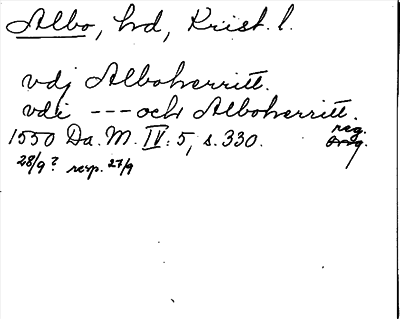 Albo, hd, Krist. l.
vdj Alboherritt.
vdi --- och Alboherritt.
1550 Da. M. IV: 5, s. 330. reg.
28/9? resp. 27/9